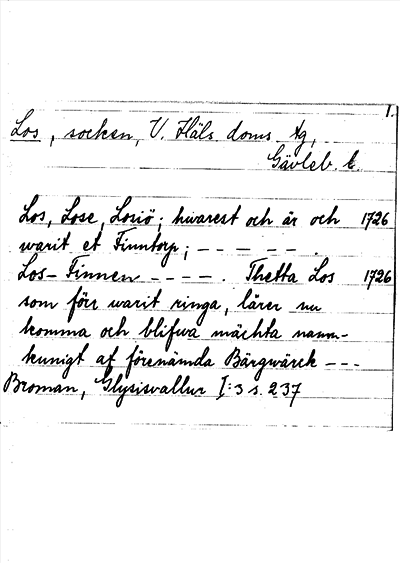 1.
Los, socken, V. Häls. doms. tg,
Gävleb. l.
Los, Lose, Losiö; hwarest och är och 1726
warit et Finntorp; – – – –.
Los-Finnen – – – –. Thetta Los 1726
som förr warit ringa, lärer nu
komma och blifwa mächta namn-
kunigt af förenämda Bärgwärck – – –
Broman, Glysisvallur I:3 s. 237